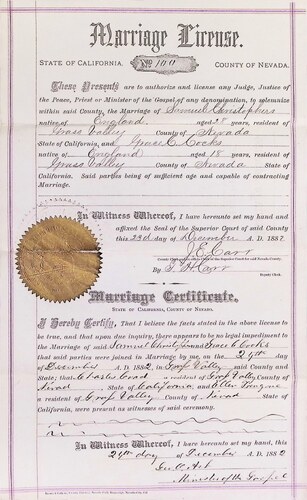 Marriage License.
STATE OF CALIFORNIA, No 100 COUNTY OF NEVADA.
These Presents are to authorize and license any Judge, Justice of
the Peace, Priest or Minister of the Gospel of any denomination, to solemnize
within said County, the Marriage of Samuel Christophers
native of England aged 28 years, resident of
Grass Valley County of Nevada
State of California, and Grace C. Cocks
native of England aged 18 years, resident of
Grass Valley County of Nevada State of
California. Said parties being of sufficient age and capable of contracting
Marriage.
In Witness Whereof, I have hereunto set my hand and
affixed the Seal of the Superior Court of said County
this 23d day of December A. D. 1882
Carr
By Carr
Marriage Certificate.
STATE OF CALIFORNIA, COUNTY OF NEVADA.
I Hereby Certify, That I believe the facts stated in the above license to
be true, and that upon due inquiry, there appears to be no legal impediment to
the Marriage of said Samuel Christophers Grace C Cocks
that said parties were joined in Marriage by me, on the 24th day
of December A. D. 1882, in Grass Valley said County and
State; that Charles a resident of Grass Valley County of
Nevad , State of California; and Ellen
a resident of Grass Valley County of Nevad State of
, were present as witnesses of said ceremony.
In Witness Whereof, I have hereunto set my hand, this
24th day of December A. D. 1882
Minister of the Gospel